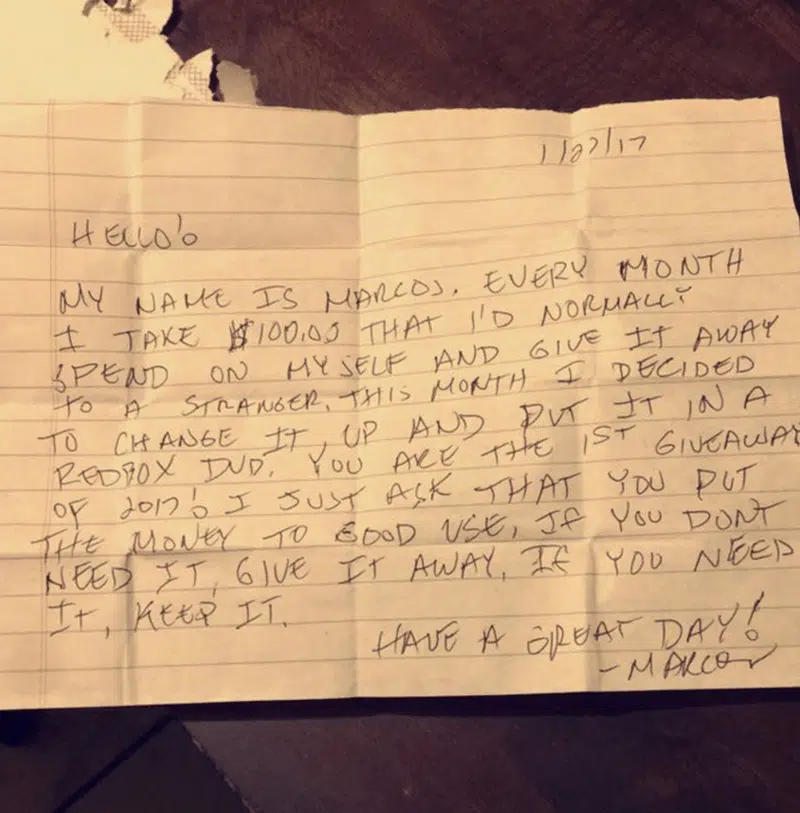 1/27/17
HELLO!
MY NAME IS MARCOS. EVERY MONTH
I TAKE $100.00 THAT I'D NORMALLY
SPEND ON MYSELF AND GIVE IT AWAY
TO A STRANGER. THIS MONTH I DECIDED
TO CHANGE IT UP AND PUT IT IN A
REDBOX DVD. YOU ARE THE 1ST GIVEAWAY
OF 2017! I JUST ASK THAT YOU PUT
THE MONEY TO GOOD USE, IF YOU DONT
NEED IT, GIVE IT AWAY. IF YOU NEED
IT, KEEP IT.
HAVE A GREAT DAY!
- MARCOS